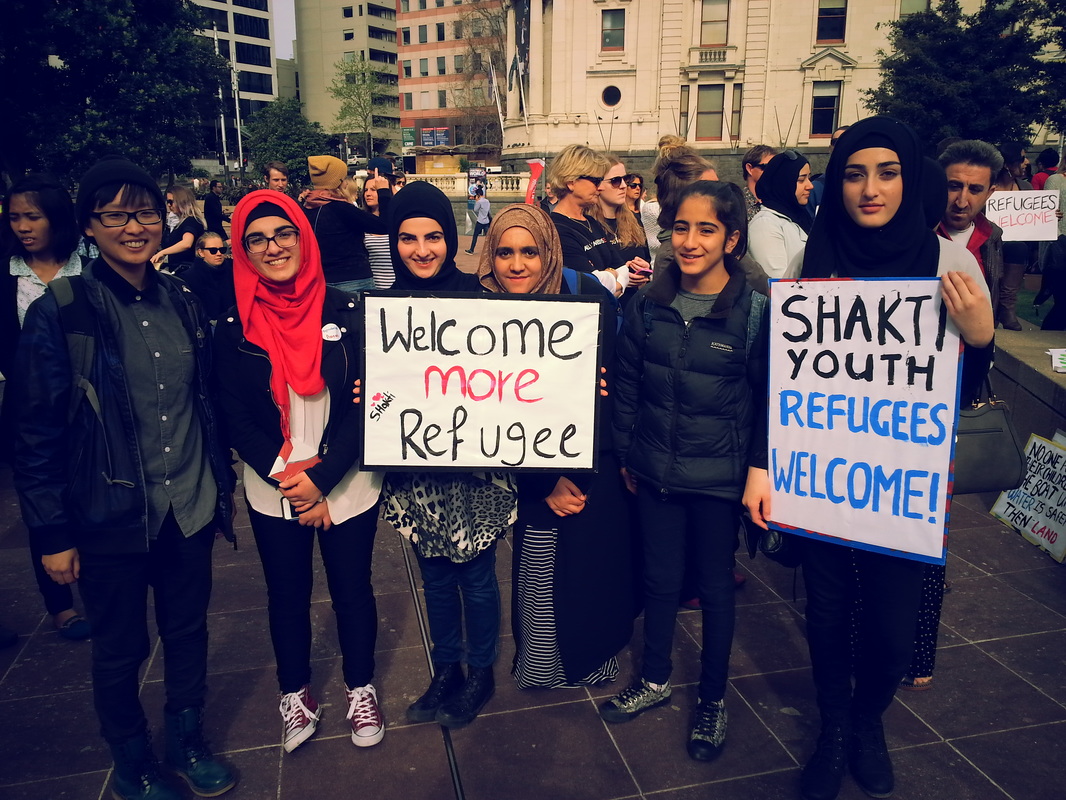 Welcome
more
Refugee
Shakti
SHAKTI
YOUTH
REFUGEES
WELCOME!
REFUGEES
WELCOME
NO ONE
THEIR CHILDREN
THE BOAT
WATER IS SAFER
THEN LAND